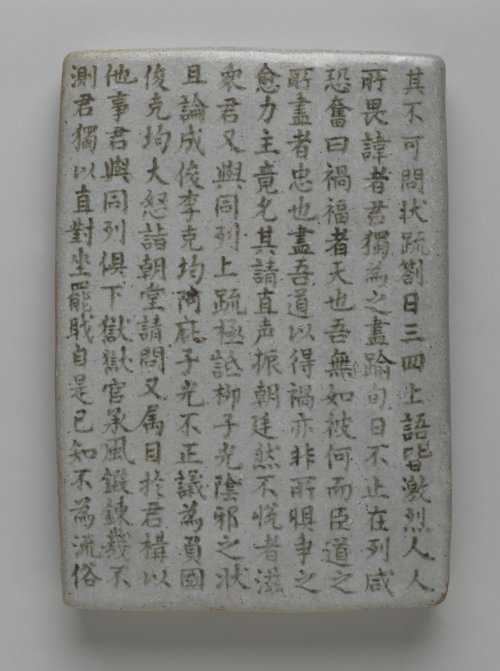 其不可問狀䟽劄日三四上語皆激烈人人
所畏諱者君獨為之盡踰旬日不止在列咸
恐奮曰禍福者天也吾無如彼何而臣道之
所盡者忠也盡吾道以得禍亦非所惧争之
愈力主竟允其請直声振朝廷然不悅者滋
衆君又與同列上䟽極詆柳子光陰邪之狀
且論成俊李克均阿庇子光不正議為負國
俊克均大怒詣朝堂請問又属目於君構以
他事君與同列俱下獄獄官承風鍛鍊幾不
測君獨以直對坐罷戝自是已知不為流俗